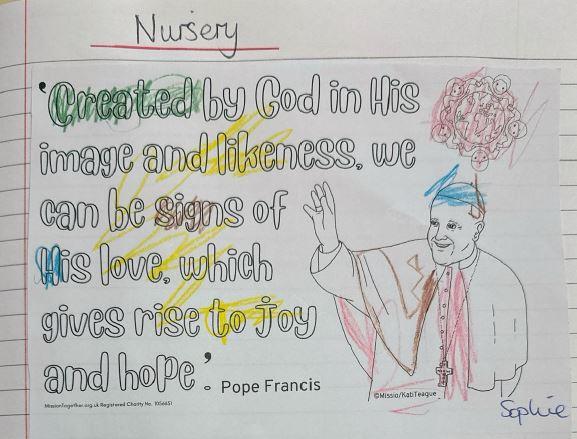 Nursery
'Created by God in His
image and likeness, we
can be signs of
His love, which
gives rise to joy
and hope'. Pope Francis
MissionTogether.org.uk Registered Charity No. 1056651
©Missio/KatiTeague
Sophie